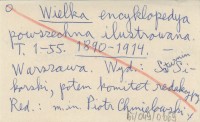 Wielka encyklopedya
powszechna ilustrowana.
T. 1-55. 1890-1914. —
Warszawa. Wyd. S. Si-
korski, potem komitet redakcyjny
Red.: m.in. Piotr Chmielowski